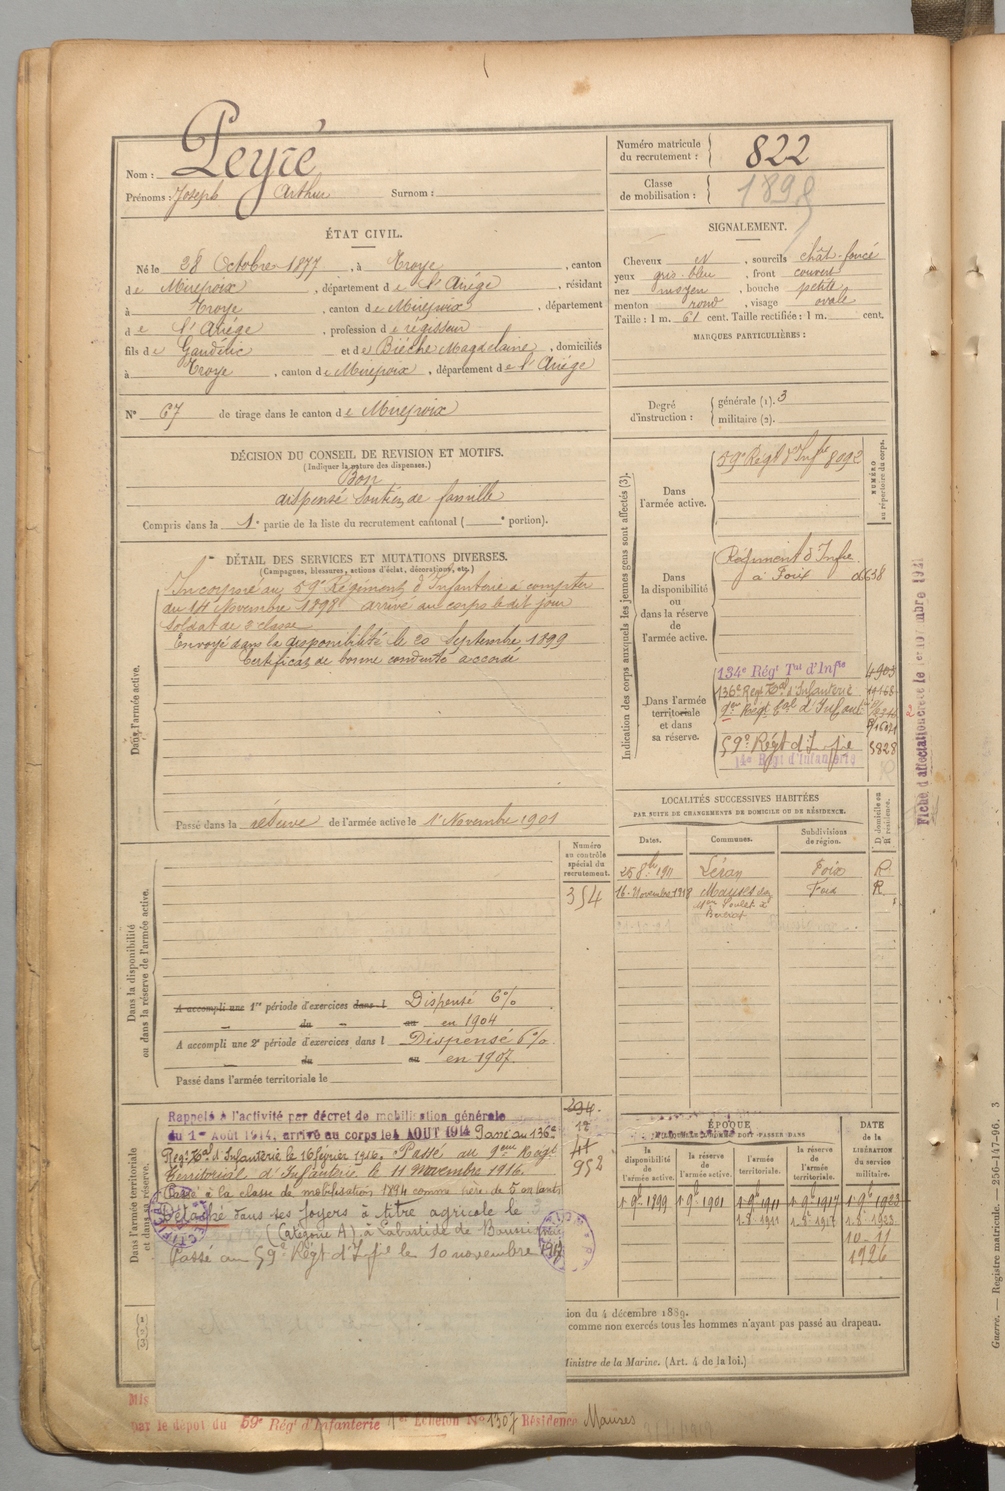 Nom : Peyré
Prénoms : Joseph Arthur Surnom :
Numéro matricule du recrutement : 822
Classe de mobilisation : 1898
ÉTAT CIVIL.
Né le 28 Octobre 1877, à Troye, canton
de Mirepoix, département de l'Ariége, résidant
à Troye, canton de Mirepoix, département
de l'Ariége, profession de régisseur
fils de Gaudéric et de Biéche Magdelaine, domiciliés
à Troye, canton de Mirepoix, département de l'Ariége
N° 67 de tirage dans le canton de Mirepoix
SIGNALEMENT.
Cheveux N, sourcils chât-foncé
yeux gris-bleu, front couvert
nez moyen, bouche petite
menton rond, visage ovale
Taille : 1 m. 61 cent. Taille rectifiée : 1 m. cent.
MARQUES PARTICULIÈRES :
Degré d'instruction : générale (1). 3
militaire (2).
DÉCISION DU CONSEIL DE REVISION ET MOTIFS.
(Indiquer la nature des dispenses.)
Bon
dispensé Soutien de famille
Compris dans la 1e partie de la liste du recrutement cantonal ( e portion).
DÉTAIL DES SERVICES ET MUTATIONS DIVERSES.
(Campagnes, blessures, actions d'éclat, décorations, etc.)
Dans l'armée active.
Incorporé au 59e Régiment d'Infanterie à compter
du 14 Novembre 1898 arrivé au corps le dit jour
Soldat de 2 classe
Envoyé dans la disponibilité le 20 Septembre 1899
Certificat de bonne conduite accordé
Passé dans la réserve de l'armée active le 1er Novembre 1901
Indication des corps auxquels les jeunes gens sont affectés (3).
NUMÉRO au répertoire du corps.
Dans l'armée active.
59e Régt d'Infie 8092
Dans la disponibilité ou dans la réserve de l'armée active.
Régiment d'Infie
à Foix
Dans l'armée territoriale et dans sa réserve.
134e Régt Tal d'Infie 4903
136e Regt Tal d'Infanterie
9em Régt Tal d'Infant
59e Régt d'Infie 5828
14e Régt d'Infanterie
Fiche d'affectation
LOCALITÉS SUCCESSIVES HABITÉES
PAR SUITE DE CHANGEMENTS DE DOMICILE OU DE RÉSIDENCE.
Dates. Communes. Subdivisions de région. D. domicile ou R. résidence.
25 8bre 1911 Léran Foix R.
16 Novembre 1918 Foix R.
Dans la disponibilité ou dans la réserve de l'armée active.
Numéro au contrôle spécial du recrutement.
354
A accompli une 1re période d'exercices dans l Dispensé 6%
du au en 1904
A accompli une 2e période d'exercices dans l Dispensé 6%
du au en 1907.
Passé dans l'armée territoriale le
Dans l'armée territoriale et dans sa réserve.
Rappelé à l'activité par décret de mobilisation générale
du 1er Août 1914, arrivé au corps le 4 AOUT 1914 Passé au 136e
Régt Tal d'Infanterie le 16 février 1916. Passé au 9eme Régt
Territorial d'Infanterie le 11 novembre 1916.
Passé à la classe de mobilisation 1894 comme père de 5 enfants
Détaché dans ses foyers à titre agricole le
(Catégorie A) à Labastide de
Passé au 59e Régt d'Infie le 10 novembre 1917
294.
12
952
ÉPOQUE
DOIT PASSER DANS
la disponibilité de l'armée active. la réserve de l'armée active. l'armée territoriale. la réserve de l'armée territoriale.
DATE de la LIBÉRATION du service militaire.
1er 9bre 1899 1er 9bre 1901 1er 9bre 1911 1er 9bre 1917 1er 9bre 1923
10-11
1926
ion du 4 décembre 1889.
comme non exercés tous les hommes n'ayant pas passé au drapeau.
Ministre de la Marine. (Art. 4 de la loi.)
Mis
par le dépôt du 59e Régt d'Infanterie 1er Echelon No 1307 Résidence
Guerre. — Registre matricule. — 256-147-96. 3